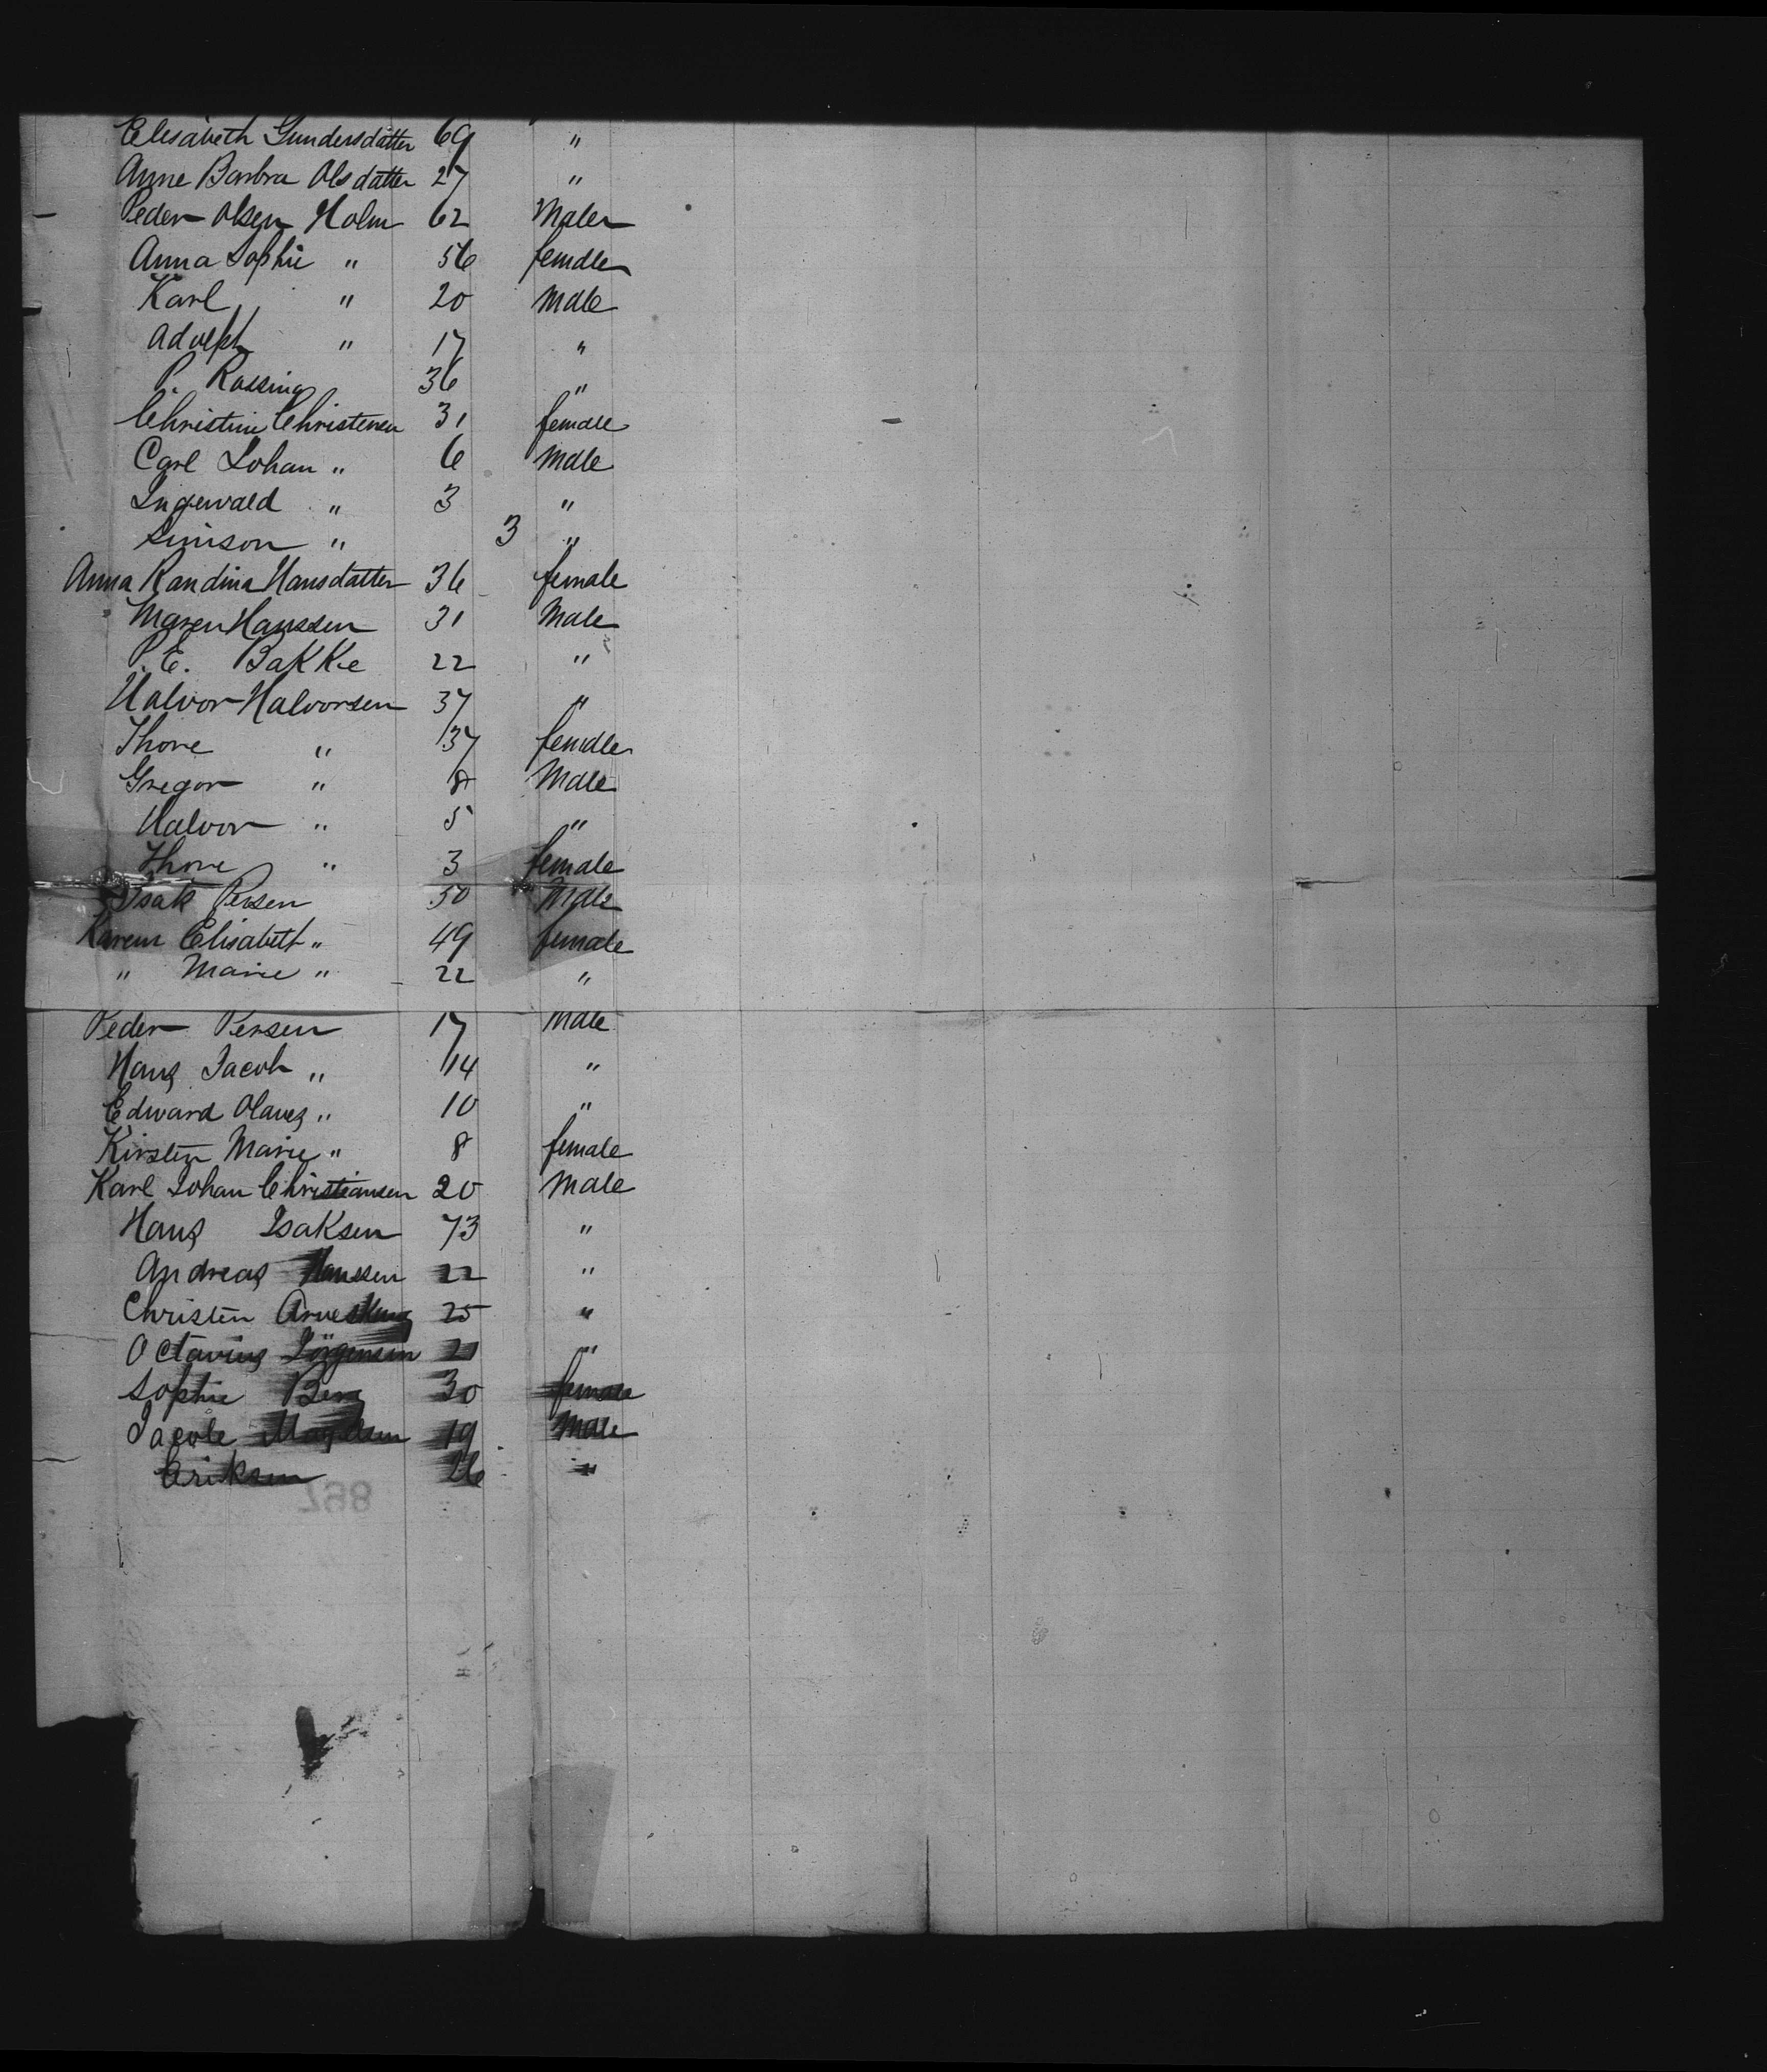 Elisabeth Gundersdatter 69 "
Anne Barbra Olsdatter 27 "
Peder Olsen Holm 62 Male
Anna Sophie " 56 female
Karl " 20 Male
Adolph " 17 "
P. Rossing 36 "
Christine Christensen 31 female
Carl Johan " 6 Male
Ingewald " 3 "
Simson " 3 "
Anna Randina Hansdatter 36 female
Maren Hanssen 31 Male
P. E. Bakke 22 "
Halvor Halvorsen 37 "
Thore " 37 female
Gregor " 8 Male
Halvor " 5 "
Thore " 3 female
Isak Persen 50 Male
Karen Elisabeth " 49 female
" Marie " 22 "
Peder Persen 17 Male
Hans Jacob " 14 "
Edward Olaves " 10 "
Kirsten Marie " 8 female
Karl Johan Christiansen 20 Male
Hans Isaksen 73 "
Andreas Hanssen 22 "
Christen 25 "
Octavius Jörgensen 21 "
Sophie Berg 30 female
Jacob 19 Male
Eriksen 26 "